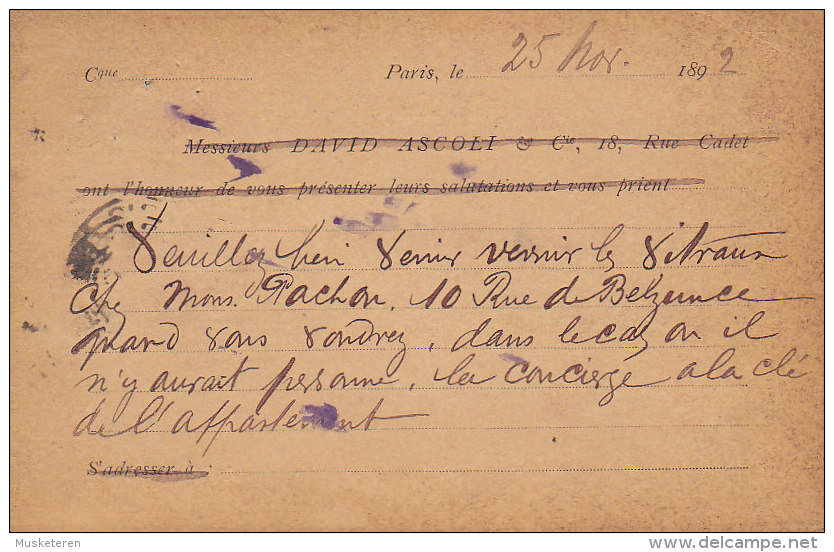 Cque Paris, le 25 Nov. 1892
Messieurs DAVID ASCOLI & Cie, 18, Rue Cadet
ont l'honneur de vous présenter leurs salutations et vous prient
Veuillez bien venir vernir les vitraux
chez Mons. Pachon, 10 Rue de Belzunce
quand vous voudrez, dans le cas ou il
n'y aurait personne, la concierge a la clé
de l'appartement
S'adresser à :
Musketeren
delcampe.net